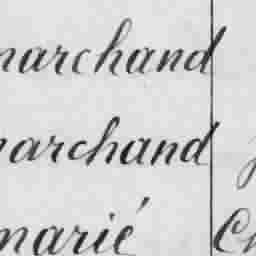 marchand
marchand
marié